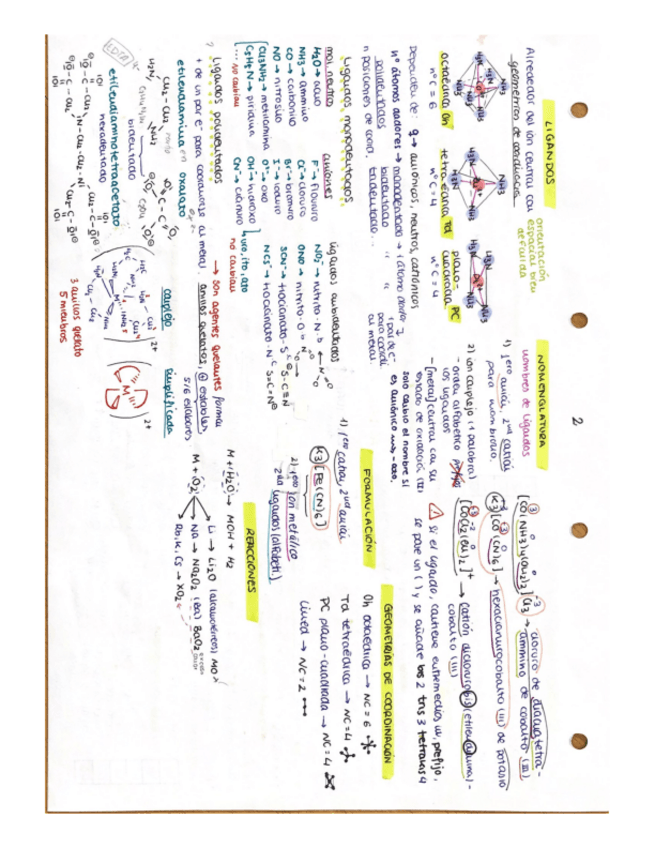 2
LIGANDOS
Alrededor del ion central con
geometrías de coordinación
orientación
espacial bien
definida
octaédrica Oh
nºC = 6
tetraedrica Td
nºC = 4
plano-
cuadrada PC
nºC = 4
Dependen de: q → aniónicos, neutros, catiónicos
nº átomos dadores → monodentado → 1 átomo dador
polidentados
bidentado
tridentado...
n posiciones de coord.
1 par de e-
para coordi
al metal.
Ligandos monodentados
mol. neutra
H2O → acuo
NH3 → ammino
CO → carbonilo
NO → nitrosilo
CH3NH2 → metilamina
C5H5N → piridina
... no cambian
aniones
F- → fluoruro
Cl- → cloruro
Br- → bromuro
I- → ioduro
O2- → oxo
OH- → hidroxo
CN- → cianuro
uro, ito, ato
no cambian
Ligandos ambidentados
NO2- → nitrito-N
ONO- → nitrito-O
SCN- → tiocianato-S
NCS- → tiocianato-N
Ligandos polidentados
+ de un par e- para coordinarse al metal.
→ son agentes quelantes forman
anillos quelatos, ⊕ estables
5/6 eslabones
etilendiamina en
bidentado
oxalato
EDTA
etilendiaminotetraacetato
hexadentado
complejo
simplificada
3 anillos quelato
5 miembros
NOMENCLATURA
nombres de ligandos
1) 1ero anión 2ndo catión
para nombrarlo
2) ion complejo (1 palabra)
- orden alfabético
los ligandos
- [metal] central con su
estado de oxidación (II)
solo cambio el nombre si
es aniónico → -ato.
[CO(NH3)4(OH2)2]Cl3 → cloruro de diacuatetra-
ammino de cobalto (III)
K3[CO(CN)6] → hexacianurocobalto (III) de potasio
[COCl2(en)2]+ → catión diclorurobis(etilendiamina)-
cobalto (III)
Si el ligando, contiene entremedios un, prefijo,
se pone un ( ) y se añade bis 2 tris 3 tetrakis 4
FORMULACIÓN
1) 1ero catión 2ndo anión
K3[Fe(CN)6]
2) 1ero ion metálico
2ndo ligandos (alfabeti.)
GEOMETRÍAS DE COORDINACIÓN
Oh octaédrica → NC = 6
Td tetraédrica → NC = 4
PC plano-cuadrada → NC = 4
Lineal → NC = 2
REACCIONES
M + H2O → MOH + H2
M + O2
Li → Li2O (alcalinotérreos) MO
Na → Na2O2 (Ba) BaO2
Rb, K, Cs → XO2